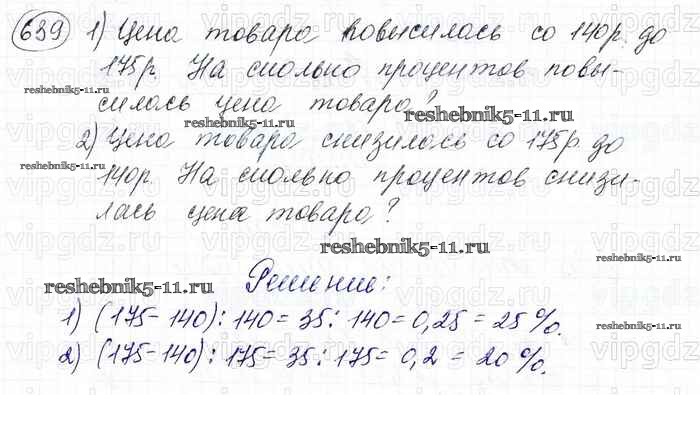 639 1) Цена товара повысилась со 140р. до
175р. На сколько процентов повы-
силось цена товара?
2) Цена товара снизилась со 175р. до
140р. На сколько процентов снизи-
лась цена товара?
Решение:
1) (175-140): 140 = 35: 140 = 0,25 = 25%.
2) (175-140): 175 = 35: 175 = 0,2 = 20%.
reshebnik5-11.ru
reshebnik5-11.ru
reshebnik5-11.ru
reshebnik5-11.ru
reshebnik5-11.ru
reshebnik5-11.ru